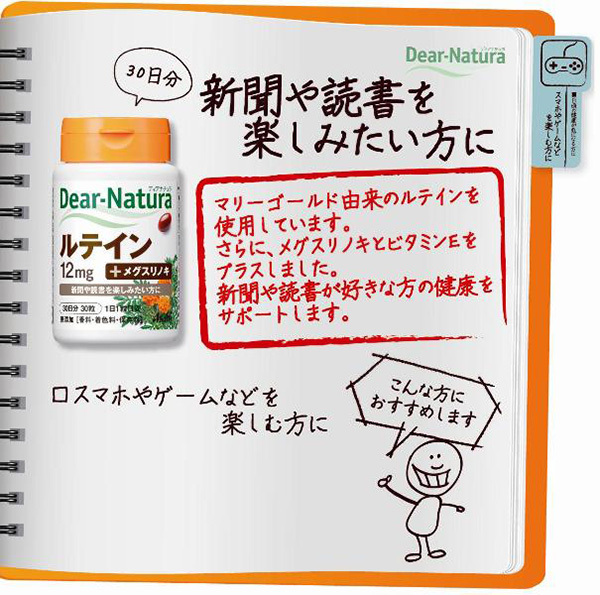 Dear-Natura
30日分
新聞や読書を
楽しみたい方に
Dear-Natura
ディアナチュラ
ルテイン
12mg
+メグスリノキ
新聞や読書を楽しみたい方に
30日分 30粒
無添加
マリーゴールド由来のルテインを
使用しています。
さらに、メグスリノキとビタミンEを
プラスしました。
新聞や読書が好きな方の健康を
サポートします。
ロスマホやゲームなどを
楽しむ方に
こんな方に
おすすめします
スマホやゲームなど
を楽しむ方に